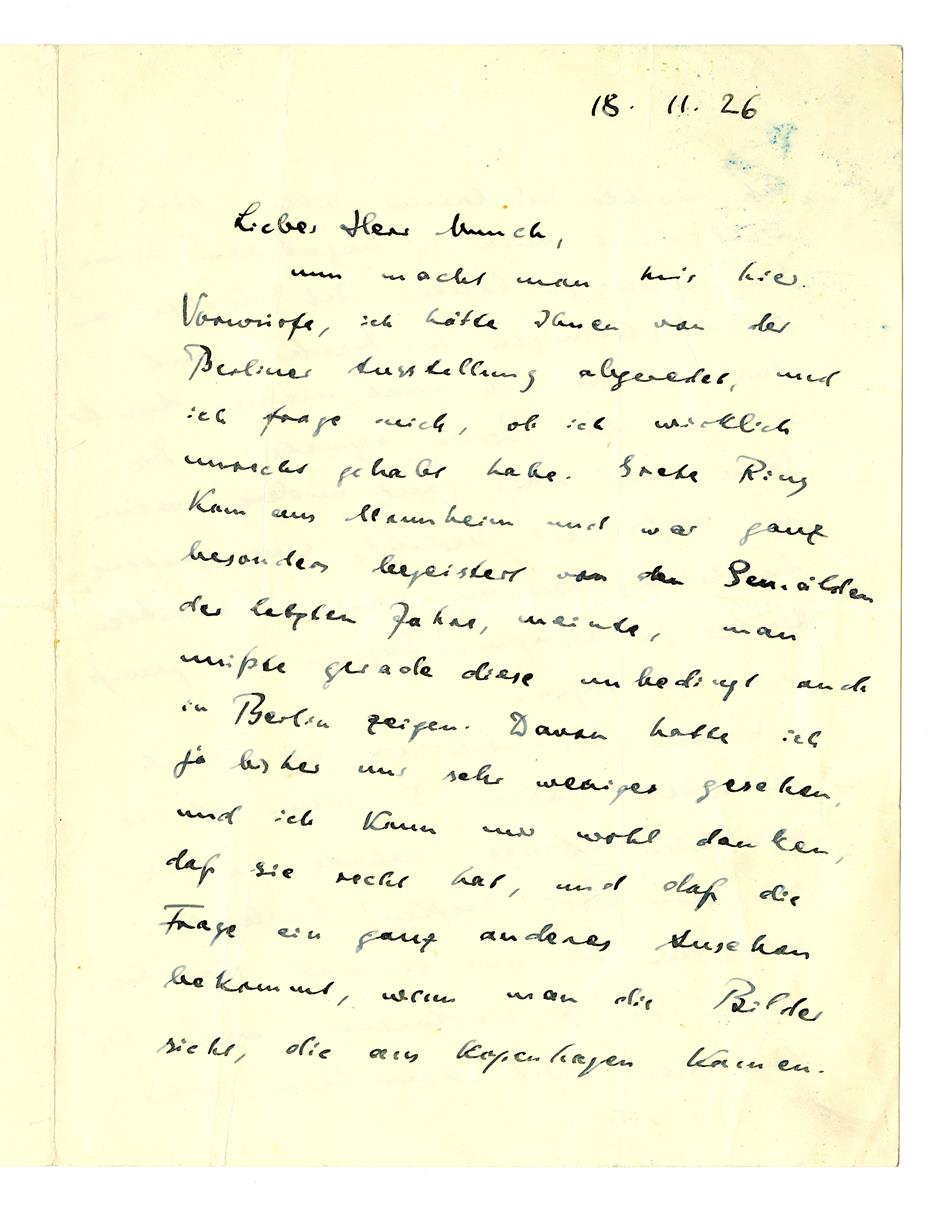 18. 11. 26
Lieber Herr Munch,
nun macht man mir hier
Vorwürfe, ich hätte Ihnen von der
Berliner Ausstellung abgeredet, und
ich frage mich, ob ich wirklich
unrecht gehabt habe. Grete Ring
kam aus Mannheim und war ganz
besonders begeistert von den Gemälden
der letzten Jahre, meinte, man
müßte gerade diese unbedingt auch
in Berlin zeigen. Davon hatte ich
ja bisher nur sehr weniges gesehen,
und ich kann mir wohl denken,
daß sie recht hat, und daß die
Frage ein ganz anderes Ansehen
bekommt, wenn man die Bilder
sieht, die aus Kopenhagen kamen.